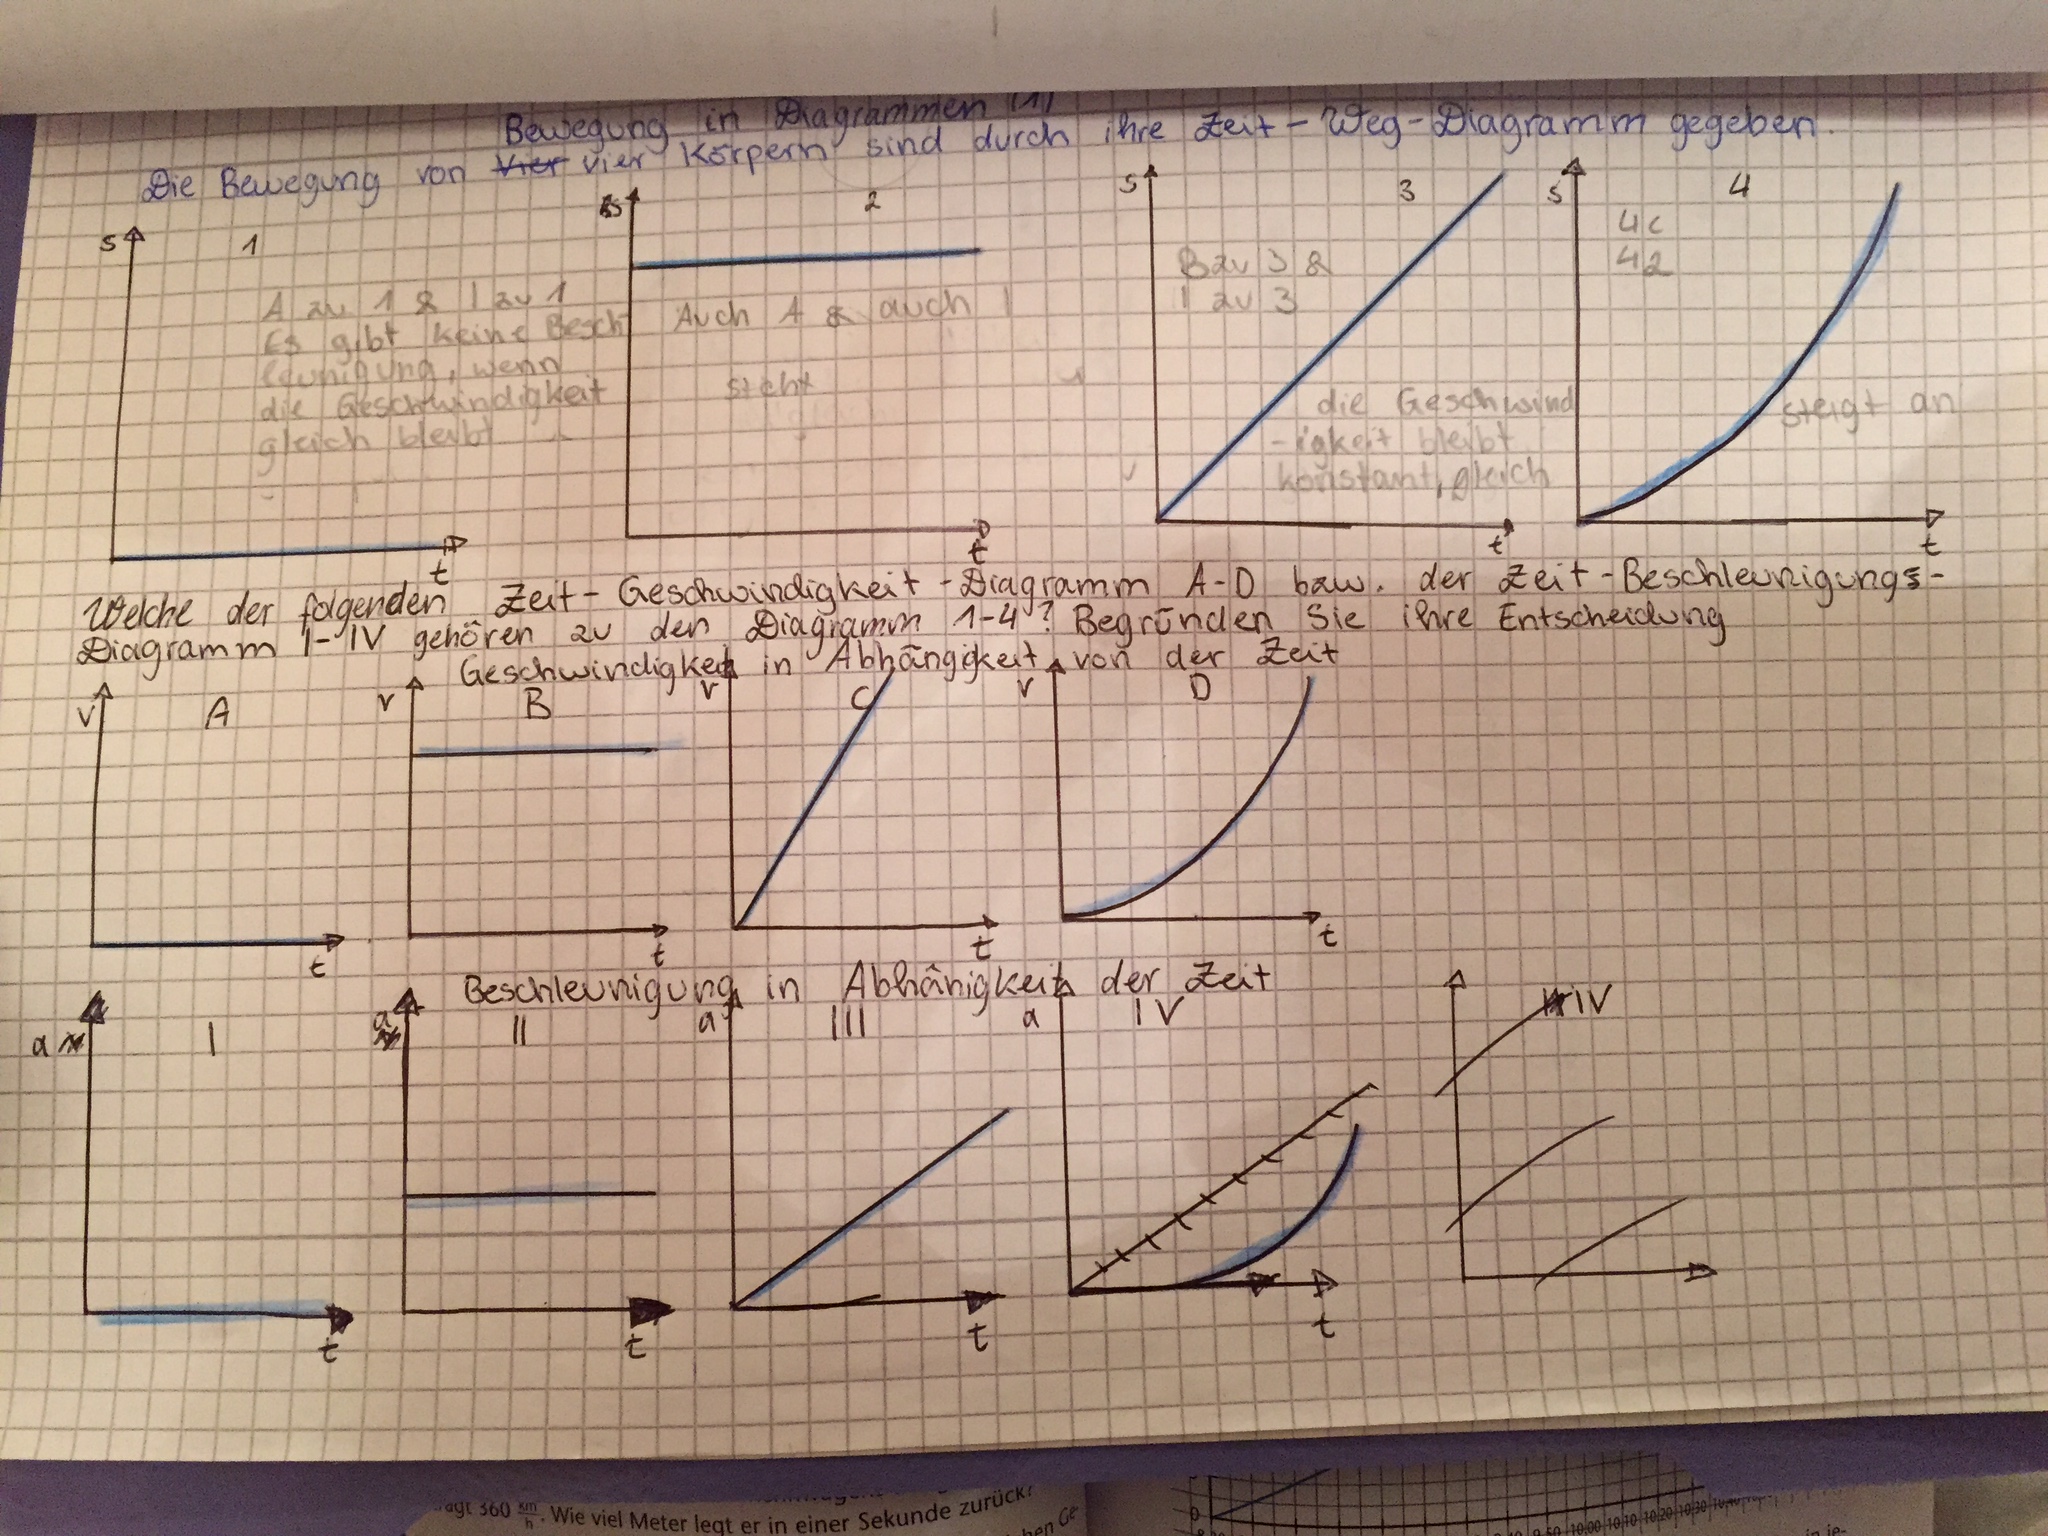 Bewegung in Diagrammen (1)
Die Bewegung von vier Körpern sind durch ihre Zeit-Weg-Diagramm gegeben.
s 1
A zu 1 & I zu 1
Es gibt keine Besch
leunigung, wenn
die Geschwindigkeit
gleich bleibt
t
s 2
Auch A & auch I
steht
t
s 3
B zu 3 &
I zu 3
die Geschwind
-igkeit bleibt
konstant, gleich
t
s 4
4c
42
steigt an
t
Welche der folgenden Zeit-Geschwindigkeit-Diagramm A-D bzw. der Zeit-Beschleunigungs-
Diagramm I-IV gehören zu den Diagramm 1-4? Begründen Sie ihre Entscheidung
Geschwindigkeit in Abhängigkeit von der Zeit
v A v B v C v D
t t t t
Beschleunigung in Abhänigkeit der Zeit
a I a II a III a IV IV
t t t t
360 km/h. Wie viel Meter legt er in einer Sekunde zurück?
0
10.00 10.10 10.20 10.30
in je-